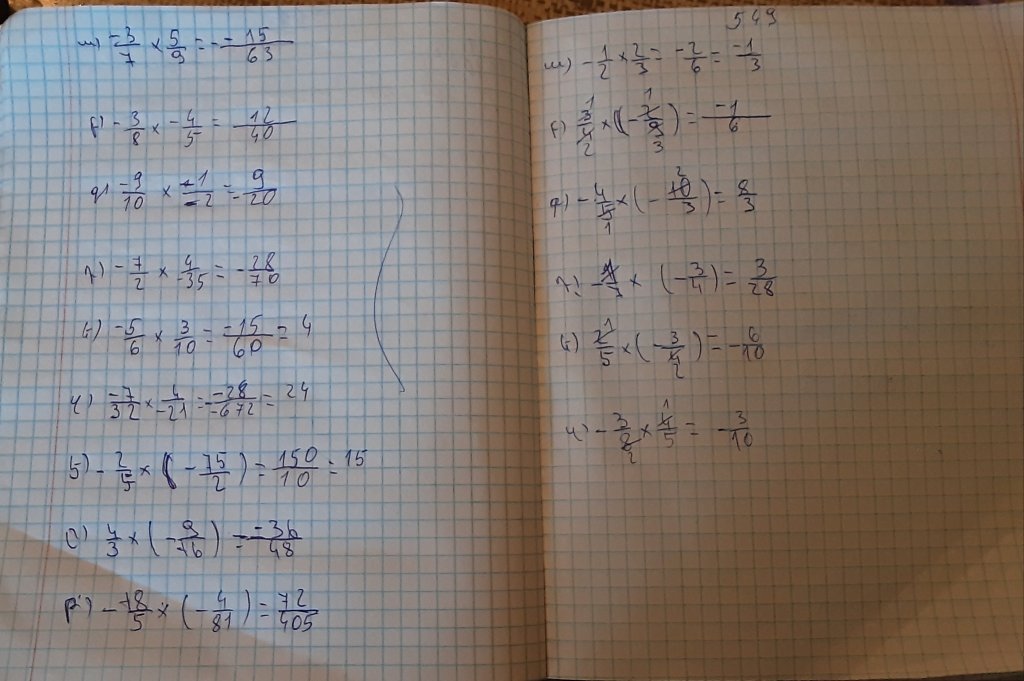 ա) -3/7 × 5/9 = -15/63
բ) -3/8 × -4/5 = 12/40
գ) -9/10 × -1/-2 = 9/-20
դ) -7/2 × 4/35 = -28/70
ե) -5/6 × 3/10 = -15/60 = 4
զ) -7/32 × 4/-21 = -28/-672 = 24
է) -2/5 × (-75/2) = 150/10 = 15
ը) 4/3 × (-9/16) = -36/48
թ) -18/5 × (-4/81) = 72/405
549
ա) -1/2 × 2/3 = -2/6 = -1/3
բ) 3/4 × (-2/9) = -1/6
գ) -4/5 × (-10/3) = 8/3
դ) × (-3/4) = 3/28
ե) 2/5 × (-3/4) = -6/10
զ) × 4/5 = -3/10